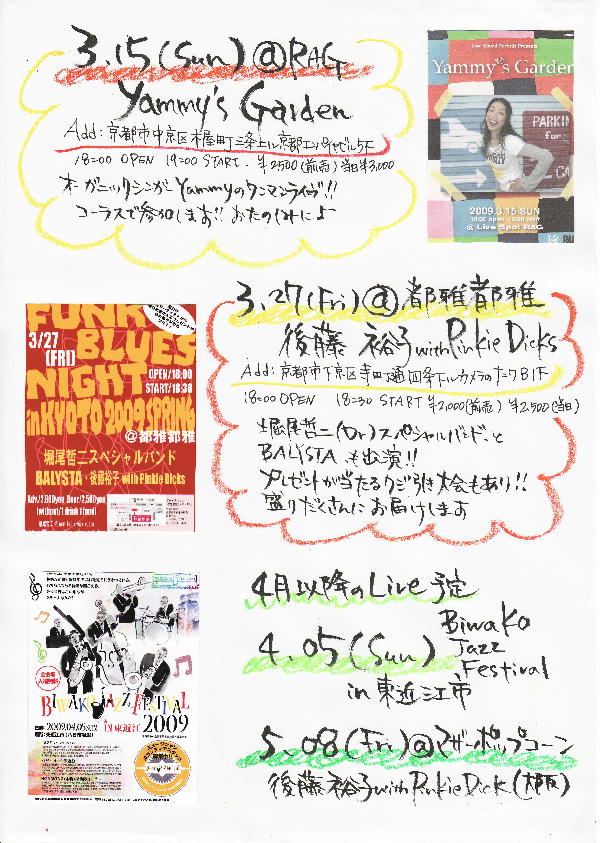 3.15(Sun)@RAG
Yammy's Garden
Add:京都市中京区木屋町三条上ル京都エンパイヤビル5F
18:00 OPEN 19:00 START. ¥2500(前売)当日¥3,000
オーガニックシンガーYammyのワンマンライブ!!
コーラスで参加します!! おたのしみによ
Love Sound Records Presents
Yammy's Garden
PARKIN
for
CA
2009.3.15 SUN
18:00 open 19:00 start
@ Live Spot RAG
3.27(Fri)@都雅都雅
後藤 裕子 with Pinkie Dicks
Add:京都市下京区寺町通四条下ルカメラのナニワB1F
18:00 OPEN 18:30 START ¥2,000(前売) ¥2,500(当日)
堀尾哲二(Dr)スペシャルバンド,と
BALYSTA も出演!!
プレゼントが当たるクジ引き大会もあり!!
盛りだくさんにお届けします
FUNK
3/27
(FRI)
BLUES
NIGHT
OPEN/18:00
START/18:30
in KYOTO 2009 SPRING
@都雅都雅
堀尾哲二スペシャルバンド
BALYSTA・後藤裕子 with Pinkie Dicks
Adv/2,000yen Door/2,500yen
(without/1 drink 1 food)
4月以降のLive予定
4.05(Sun)
Biwako
Jazz
Festival
in 東近江市
BIWAKO JAZZ FESTIVAL
IN 東近江 2009
2009.04.05
5.08(Fri)@マザーポップコーン
後藤裕子with Pinkie Dick(大阪)